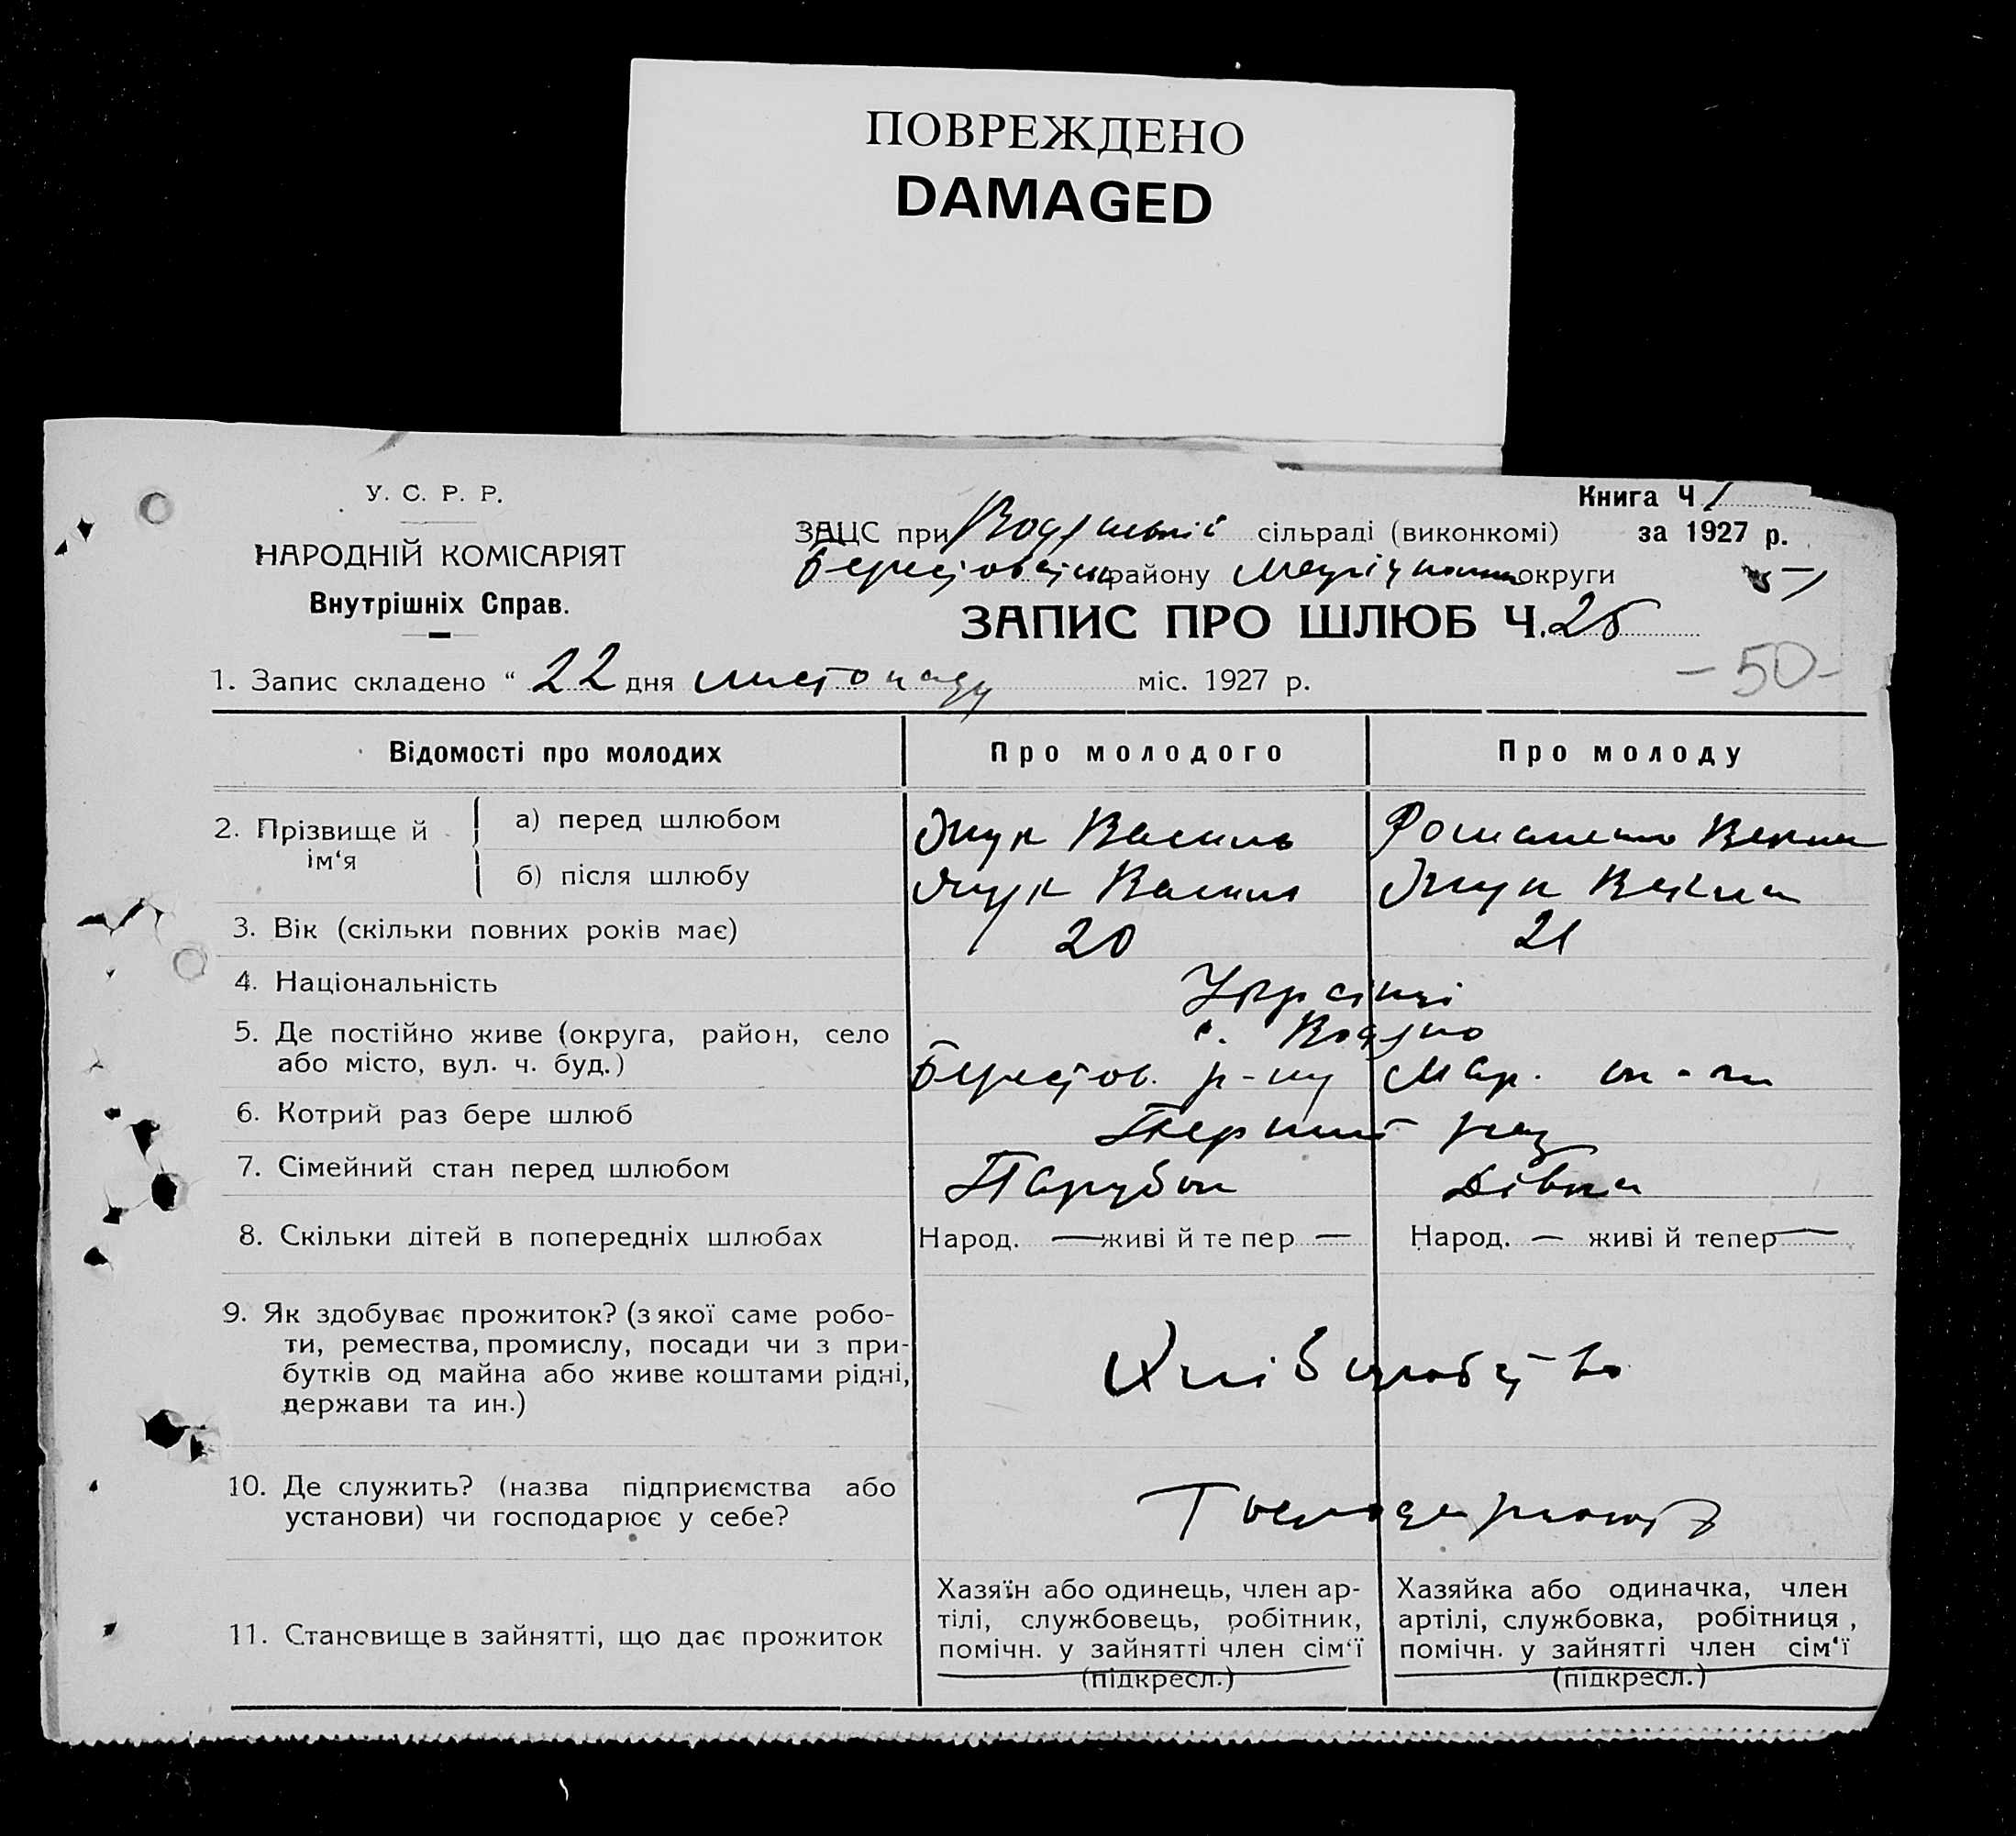 ПОВРЕЖДЕНО
DAMAGED
У. С. Р. Р.
НАРОДНІЙ КОМІСАРІЯТ
Внутрішніх Справ.
Книга Ч 1
ЗАЦС при сільраді (виконкомі) за 1927 р.
району округи
ЗАПИС ПРО ШЛЮБ Ч.
- 50 -
1. Запис складено “ 22 дня листопаду міс. 1927 р.
Відомості про молодих Про молодого Про молоду
2. Прізвище й ім‘я
а) перед шлюбом Жук Василь
б) після шлюбу Жук Василь Жук
3. Вік (скільки повних років має) 20 21
4. Національність Українці
5. Де постійно живе (округа, район, село с. Водяно
або місто, вул. ч. буд.) Берестов. р-ну Мар. ок-ги
6. Котрий раз бере шлюб Перший раз
7. Сімейний стан перед шлюбом Парубок Дівка
8. Скільки дітей в попередніх шлюбах Народ. — живі й тепер — Народ. — живі й тепер —
9. Як здобуває прожиток? (з якої саме робо-
ти, ремества, промислу, посади чи з при-
бутків од майна або живе коштами рідні,
держави та ин.)
Хліборобство
10. Де служить? (назва підприємства або
установи) чи господарює у себе?
Господарюють
11. Становище в зайнятті, що дає прожиток
Хазяїн або одинець, член ар-
тілі, службовець, робітник,
помічн. у зайнятті член сім‘ї
(підкресл.)
Хазяйка або одиначка, член
артілі, службовка, робітниця,
помічн. у зайнятті член сім‘ї
(підкресл.)